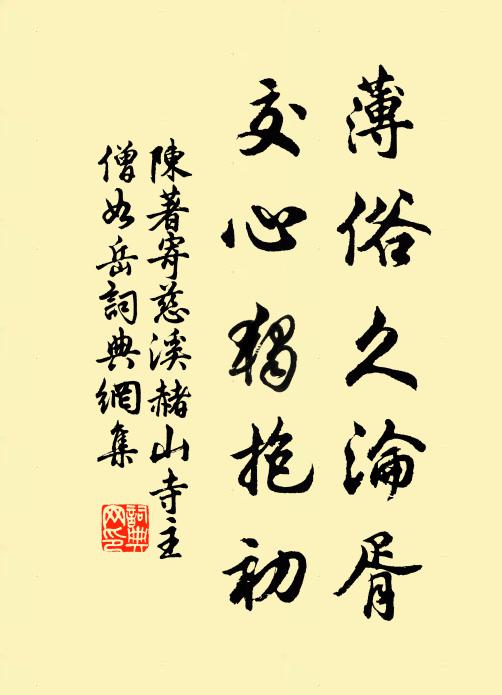 薄俗久淪胥
交心獨抱初
陳著寄慈溪赭山寺主
僧如岳詞典網集
詞典网印